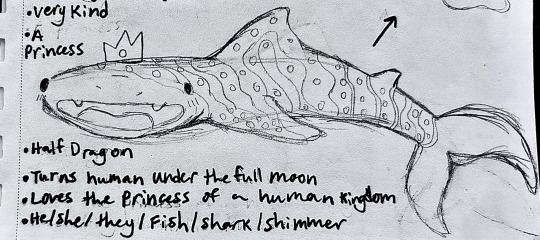 •very Kind
•A
Princess
•Half Dragon
•Turns human under the full moon
•Loves the Princess of a human Kingdom
•He/she/they/Fish/shark/shimmer